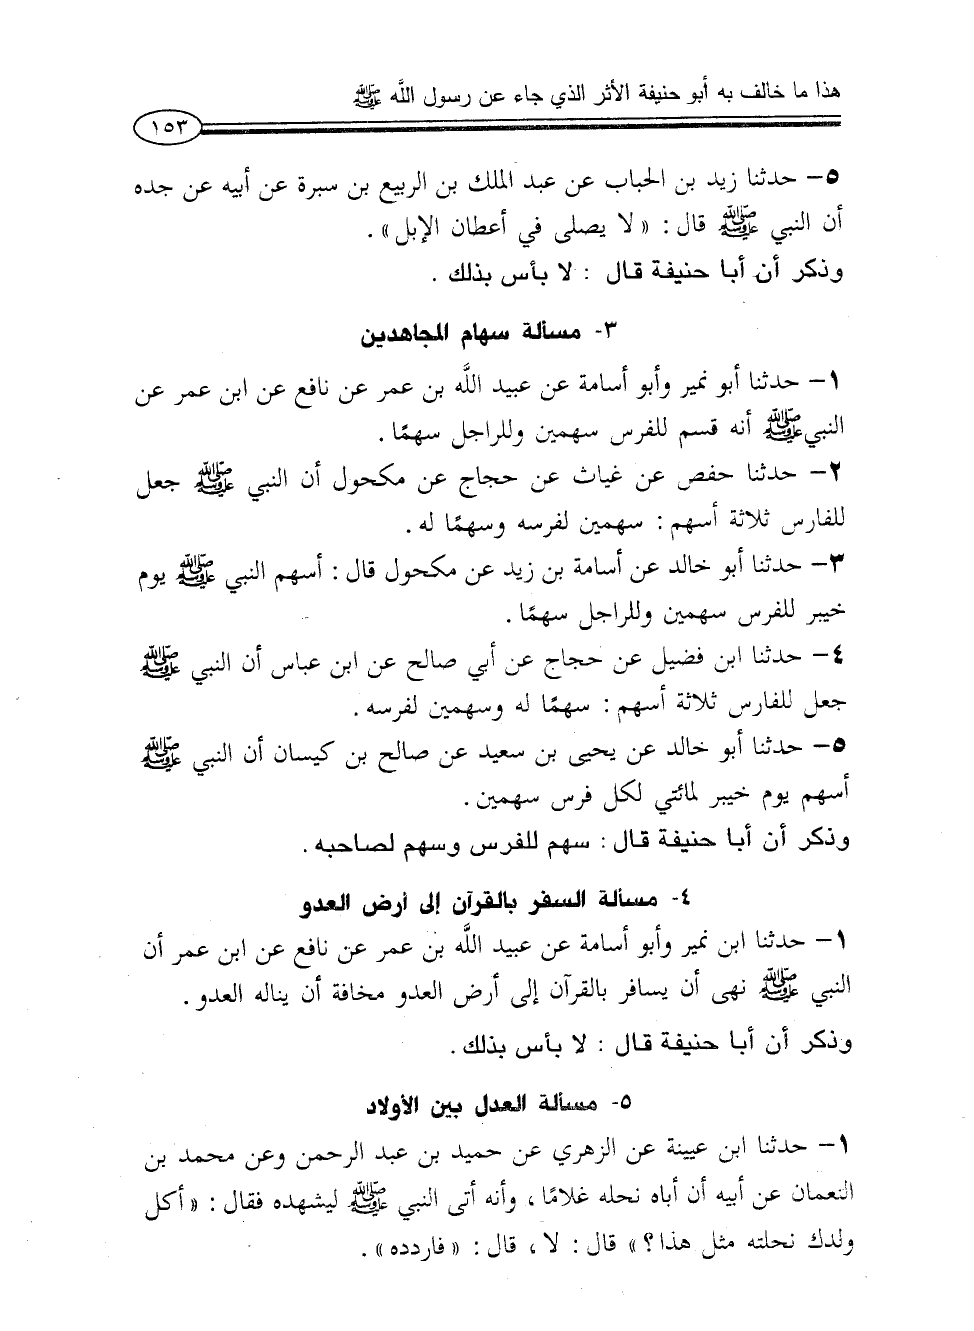 هذا ما خالف به أبو حنيفة الأثر الذي جاء عن رسول اللَّه ﷺ
١٥٣
٥- حدثنا زيد بن الحباب عن عبد الملك بن الربيع بن سبرة عن أبيه عن جده
أن النبي ﷺ قال : « لا يصلى في أعطان الإبل » .
وذكر أن أبا حنيفة قال : لا بأس بذلك .
٣- مسألة سهام المجاهدين
١- حدثنا أبو نمير وأبو أسامة عن عبيد اللَّه بن عمر عن نافع عن ابن عمر عن
النبي ﷺ أنه قسم للفرس سهمين وللراجل سهمًا .
٢- حدثنا حفص عن غياث عن حجاج عن مكحول أن النبي ﷺ جعل
للفارس ثلاثة أسهم : سهمين لفرسه وسهمًا له .
٣- حدثنا أبو خالد عن أسامة بن زيد عن مكحول قال : أسهم النبي ﷺ يوم
خيبر للفرس سهمين وللراجل سهمًا .
٤- حدثنا ابن فضيل عن حجاج عن أبي صالح عن ابن عباس أن النبي ﷺ
جعل للفارس ثلاثة أسهم : سهمًا له وسهمين لفرسه .
٥- حدثنا أبو خالد عن يحيى بن سعيد عن صالح بن كيسان أن النبي ﷺ
أسهم يوم خيبر لمائتي لكل فرس سهمين .
وذكر أن أبا حنيفة قال : سهم للفرس وسهم لصاحبه .
٤- مسألة السفر بالقرآن إلى أرض العدو
١- حدثنا ابن نمير وأبو أسامة عن عبيد اللَّه بن عمر عن نافع عن ابن عمر أن
النبي ﷺ نهى أن يسافر بالقرآن إلى أرض العدو مخافة أن يناله العدو .
وذكر أن أبا حنيفة قال : لا بأس بذلك .
٥- مسألة العدل بين الأولاد
١- حدثنا ابن عيينة عن الزهري عن حميد بن عبد الرحمن وعن محمد بن
النعمان عن أبيه أن أباه نحله غلامًا ، وأنه أتى النبي ﷺ ليشهده فقال : « أكل
ولدك نحلته مثل هذا ؟ » قال : لا ، قال : « فاردده » .